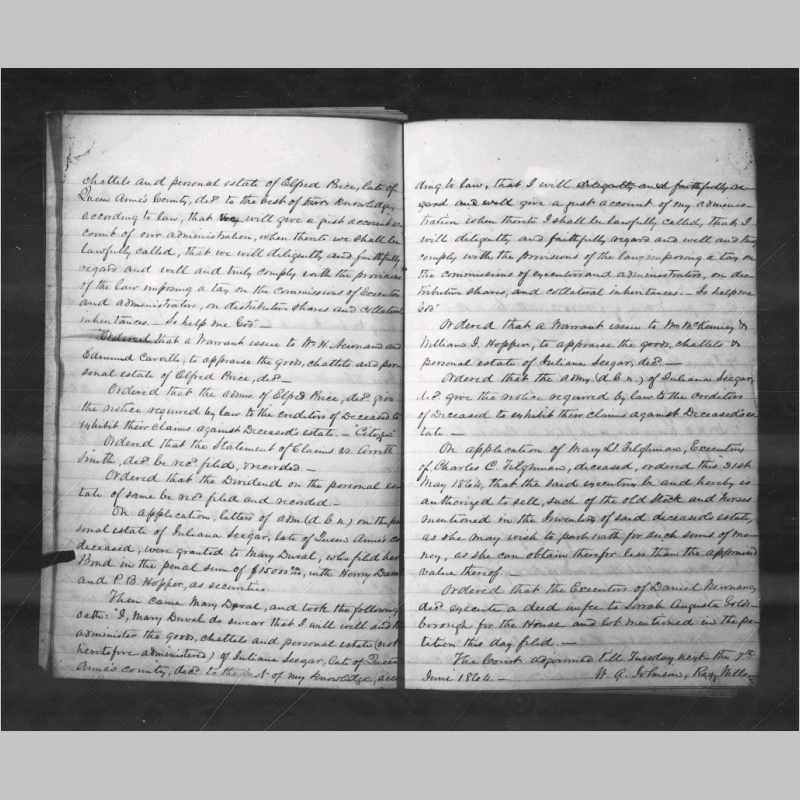 chattels and personal estate of Elfred Price, late of
Queen Anne's County, decd. to the best of Knowledge,
according to law, that we, will give a just account ac
count of our administration, when thereto we shall be
lawfully called, that we will deligently and faithfully
regard and well and truly comply with the provisions
of the law imposing a tax on the commissions of Executors
and administrators, on distributive shares and collateral
inheritances. — So help me God" —
Ordered that a Warrant issue to Wm. H. Newnam and
Edmund Carville, to appraise the goods, chattels and per-
sonal estate of Elfred Price, decd. —
Ordered that the admrs of Elfred Price, decd. give
the notice required by law to the creditors of Deceased to
exhibit their claims against Deceased's estate. — "Citizen"
Ordered that the Statement of Claims vs.
Smith, decd. be recd. filed, & recorded. —
Ordered that the Dividend on the personal es-
tate of same be recd. filed and recorded. —
On application, letters of adm (d. b. n.) on the per
sonal estate of Juliana Seegar, late of Queen Anne's Co
deceased, were granted to Mary Duval, who filed her
Bond in the penal sum of $15000 with Henry
and P. B. Hopper, as securities.
Then came Mary Duval, and took the following
oath: "I, Mary Duval do swear that I will well and
administer the goods, chattels and personal estate (not
heretofore administered) of Juliana Seegar, late of Queen
Anne's county, decd. to the best of my knowledge, accor
ding to law, that I will deligently and faithfully re
gard and well give a just account of my adminis-
tration when thereto I shall be lawfully called, that I
will deligently and faithfully regard and well and truly
comply with the provisions of the law imposing a tax on
the commissions of executors and administrators, on dis-
tributive shares, and collateral inheritances. — So help me
God"
Ordered that a Warrant issue to Wm McKenney &
William J. Hopper, to appraise the goods, chattels &
personal estate of Juliana Seegar, decd. —
Ordered that the admr. (d. b. n.) of Julianna Seegar,
decd. give the notice required by law to the Creditors
of Deceased to exhibit their claims against Deceased's es
tate —
On application of Mary D. Tilghman, Executrix
of Charles C. Tilghman, deceased, ordered this 31st
May 1864, that the said executrix be and hereby is
authorized to sell, such of the old Stock and horses
mentioned in the Inventory of said deceased's estate,
as she may wish to part with for such sums of mo-
ney, as she can obtain therefor less than the appraised
value thereof. —
Ordered that the Executors of Daniel Newnam,
decd. execute a deed in fee to Sarah Augusta Golds-
borough for the House and lot mentioned in the pe-
tition this day filed. —
The Court adjourned till Tuesday next the 7th
June 1864. — W. A. Johnson, Reg. Wills